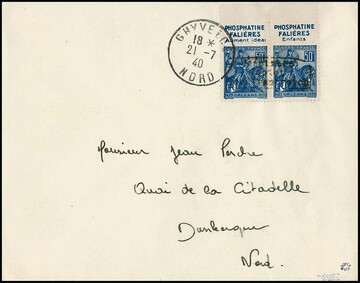 PHOSPHATINE FALIÈRES
PHOSPHATINE FALIÈRES
Aliment idéal
Enfants
50
50
GHYVELDE
18 *
21 - 7
40
NORD
Monsieur Jean Perdre
Quai de la Citadelle
Dunkerque
Nord.